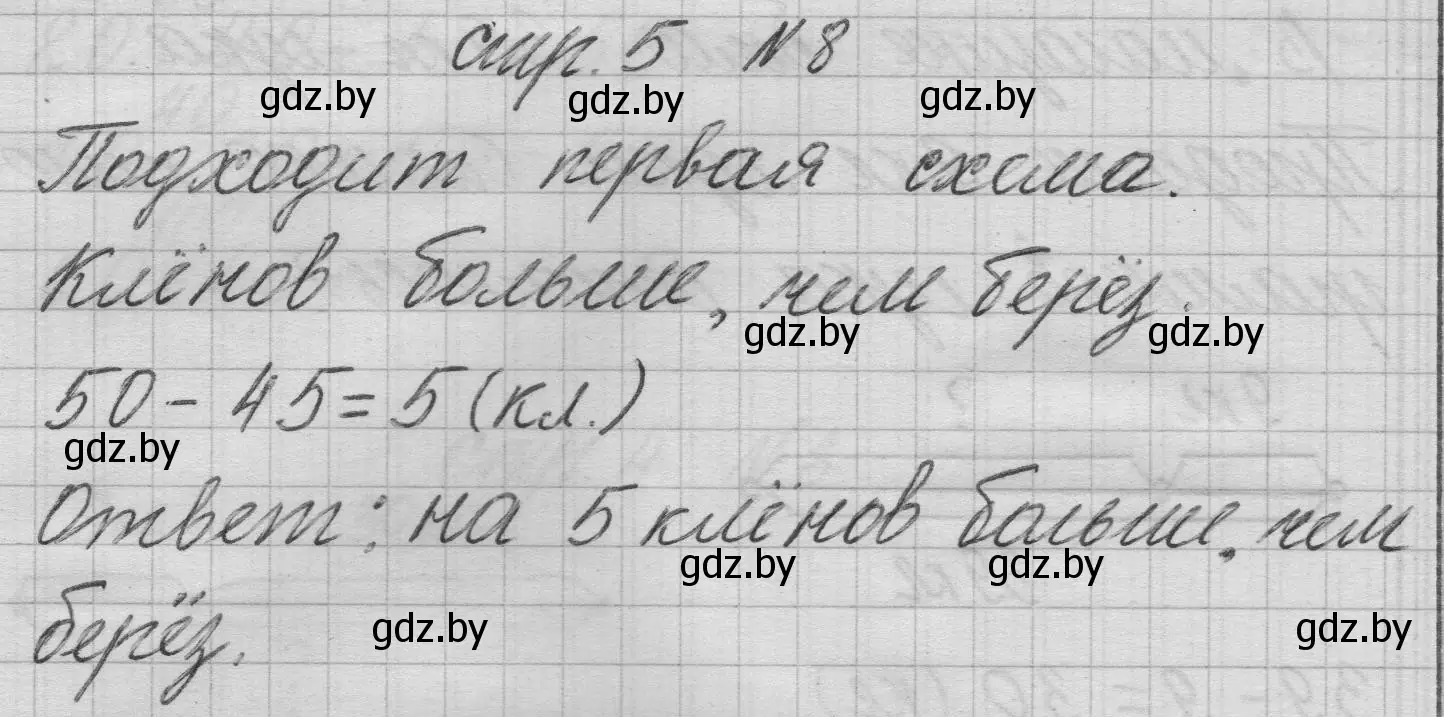 стр. 5 № 8
gdz.by gdz.by gdz.by
Подходит первая схема.
Клёнов больше, чем берёз.
gdz.by gdz.by
50 - 45 = 5 (кл.)
gdz.by
Ответ: на 5 клёнов больше, чем
gdz.by gdz.by
берёз.
gdz.by gdz.by